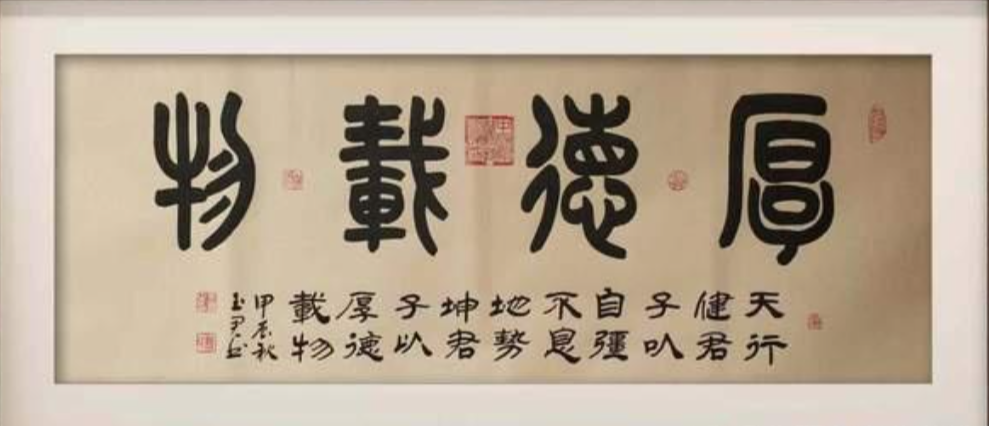 厚德載物
天行
健君
子以
自彊
不息
地勢
坤君
子以
厚德
載物
甲辰秋